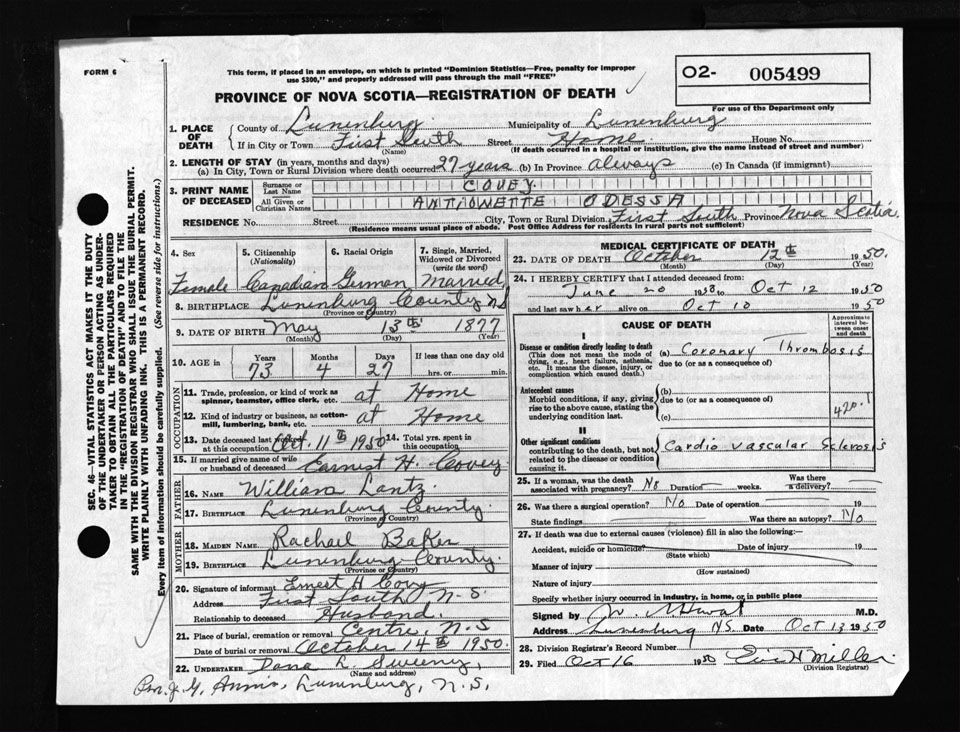 FORM 6
This form, if placed in an envelope, on which is printed "Dominion Statistics—Free, penalty for improper
use $300," and properly addressed will pass through the mail "FREE"
O2- 005499
For use of the Department only
PROVINCE OF NOVA SCOTIA—REGISTRATION OF DEATH
1. PLACE OF DEATH County of Lunenburg Municipality of Lunenburg
If in City or Town First South Street Home House No.
(Name) (If death occurred in a hospital or institution, give the name instead of street and number)
2. LENGTH OF STAY (in years, months and days)
(a) In City, Town or Rural Division where death occurred 27 years (b) In Province always (c) In Canada (if immigrant)
3. PRINT NAME OF DECEASED Surname or Last Name COVEY
All Given or Christian Names ANTIONETTE ODESSA
RESIDENCE No. Street City, Town or Rural Division First South Province Nova Scotia
(Residence means usual place of abode. Post Office Address for residents in rural parts not sufficient)
4. Sex 5. Citizenship (Nationality) 6. Racial Origin 7. Single, Married, Widowed or Divorced (write the word)
Female Canadian German Married
8. BIRTHPLACE Lunenburg County NS
(Province or Country)
9. DATE OF BIRTH May 13th 1877
(Month) (Day) (Year)
10. AGE in Years Months Days If less than one day old
73 4 27 hrs. or min.
OCCUPATION
11. Trade, profession, or kind of work as spinner, teamster, office clerk, etc. at Home
12. Kind of industry or business, as cotton-mill, lumbering, bank, etc. at Home
13. Date deceased last worked at this occupation Oct. 11th 1950 14. Total yrs. spent in this occupation
15. If married give name of wife or husband of deceased Earnest H. Covey
FATHER
16. NAME William Lantz
17. BIRTHPLACE Lunenburg County
(Province or Country)
MOTHER
18. MAIDEN NAME Rachael Baker
19. BIRTHPLACE Lunenburg County
(Province or Country)
20. Signature of informant Ernest H Covy
Address First South N.S.
Relationship to deceased Husband.
21. Place of burial, cremation or removal Centre, N.S
Date of burial or removal October 14th 1950.
22. UNDERTAKER Dana L. Sweeny,
(Name and address)
Per. J. G. Lunenburg, N.S.
MEDICAL CERTIFICATE OF DEATH
23. DATE OF DEATH October 12th 1950.
(Month) (Day) (Year)
24. I HEREBY CERTIFY that I attended deceased from:
June 20 1950 to Oct 12 1950
and last saw her alive on Oct 10 1950
CAUSE OF DEATH
Approximate interval between onset and death
I
Disease or condition directly leading to death
(This does not mean the mode of dying, e.g., heart failure, asthenia, etc. It means the disease, injury, or complication which caused death.)
(a) Coronary Thrombosis
due to (or as a consequence of)
Antecedent causes
Morbid conditions, if any, giving rise to the above cause, stating the underlying condition last.
(b)
due to (or as a consequence of)
(c)
420.1
II
Other significant conditions
contributing to the death, but not related to the disease or condition causing it.
Cardio vascular Sclerosis
25. If a woman, was the death associated with pregnancy? No Duration weeks. Was there a delivery?
26. Was there a surgical operation? No Date of operation 19
State findings Was there an autopsy? No
27. If death was due to external causes (violence) fill in also the following:—
Accident, suicide or homicide? Date of injury 19
(State which)
Manner of injury
(How sustained)
Nature of injury
Specify whether injury occurred in industry, in home, or in public place
Signed by M.D.
Address Lunenburg NS. Date Oct 13 1950
28. Division Registrar's Record Number
29. Filed Oct 16 1950 H Miller
(Division Registrar)
SEC. 46—VITAL STATISTICS ACT MAKES IT THE DUTY
OF THE UNDERTAKER OR PERSON ACTING AS UNDER-
TAKER TO OBTAIN ALL THE PARTICULARS REQUIRED
IN THE "REGISTRATION OF DEATH" AND TO FILE THE
SAME WITH THE DIVISION REGISTRAR WHO SHALL ISSUE THE BURIAL PERMIT.
WRITE PLAINLY WITH UNFADING INK. THIS IS A PERMANENT RECORD.
Every item of information should be carefully supplied. (See reverse side for instructions.)